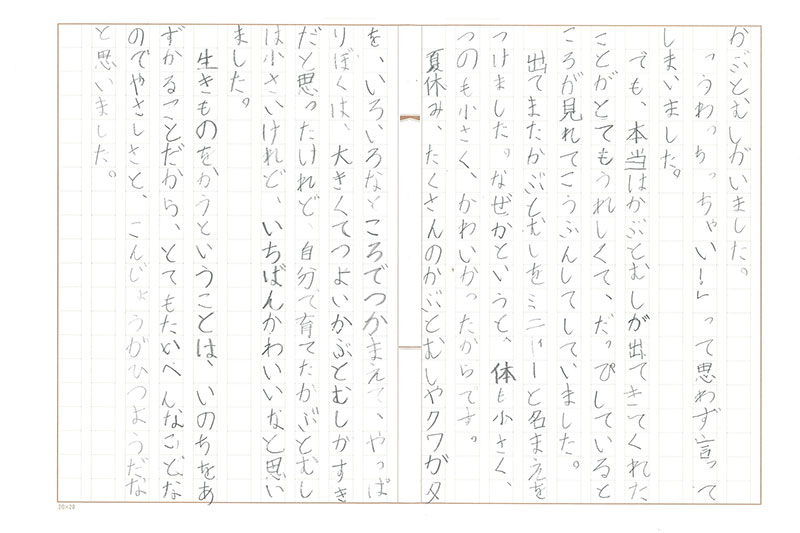 かぶとむしがいました。
「うわっちっちゃい!」って思わず言って
しまいました。
でも、本当はかぶとむしが出てきてくれた
ことがとてもうれしくて、だっぴしていると
ころが見れてこうふんしてしていました。
出てきたかぶとむしをミニャーと名まえを
つけました。なぜかというと、体も小さく、
つのも小さく、かわいかったからです。
夏休み、たくさんのかぶとむしやクワガタ
を、いろいろなところでつかまえて、やっぱ
りぼくは、大きくてつよいかぶとむしがすき
だと思ったけれど、自分で育てたかぶとむし
は小さいけれど、いちばんかわいいなと思い
ました。
生きものをかうということは、いのちをあ
ずかることだから、とてもたいへんなことな
のでやさしさと、こんじょうがひつようだな
と思いました。
20×20